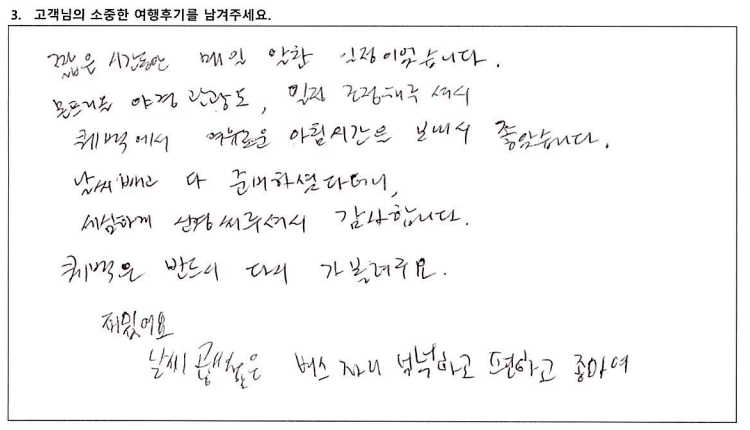 3. 고객님의 소중한 여행후기를 남겨주세요.
짧은 시간동안 매일 알찬 일정이었습니다.
몬트리올 야경 관광도, 일정 조정해주셔서
퀘벡에서 여유로운 아침시간을 보내서 좋았습니다.
날씨빼고 다 준비하셨다더니,
세심하게 신경써주셔서 감사합니다.
퀘벡은 반드시 다시 가볼려구요.
재밌어요
날씨 버스 자리 넉넉하고 편하고 좋아여